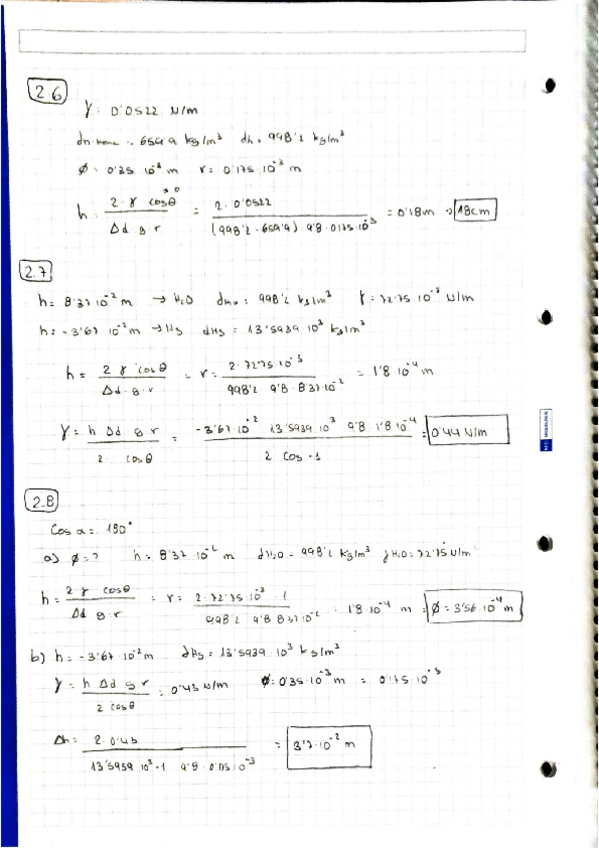 2.6
γ = 0'0522 N/m
dn-hexano = 659'9 kg/m³ dh = 998'2 kg/m³
φ = 0'35 · 10⁻³ m r = 0'175 · 10⁻³ m
h = 2 · γ cosθ / Δd · g · r = 2 · 0'0522 / (998'2 - 659'9) 9'8 · 0'175 · 10⁻³ = 0'18m → 18cm
2.7
h = 8'37 · 10⁻² m → H₂O dH₂O = 998'2 kg/m³ γ = 72'75 · 10⁻³ N/m
h = -3'67 · 10⁻² m → Hg dHg = 13'5939 · 10³ kg/m³
h = 2 γ cosθ / Δd · g · r = r = 2 · 72'75 · 10⁻³ / 998'2 · 9'8 · 8'37 · 10⁻² = 1'8 · 10⁻⁴ m
γ = h Δd g r / 2 · cosθ = -3'67 · 10⁻² 13'5939 · 10³ 9'8 · 1'8 · 10⁻⁴ / 2 cos · 1 = 0'44 N/m
2.8
Cos α = 180°
a) φ = ? h = 8'37 · 10⁻² m dH₂O = 998'2 kg/m³ γH₂O = 72'75 N/m
h = 2 γ cosθ / Δd g · r = r = 2 · 72'75 · 10⁻³ · 1 / 998'2 9'8 8'37 · 10⁻² = 1'8 · 10⁻⁴ m = φ = 3'56 · 10⁻⁴ m
b) h = -3'67 · 10⁻² m dHg = 13'5939 · 10³ kg/m³
γ = h Δd g r / 2 cosθ = 0'43 N/m φ = 0'35 · 10⁻³ m = 0'175 · 10⁻³
Δh = 2 · 0'43 / 13'5939 · 10³ · 1 9'8 · 10⁻³ = 3'7 · 10⁻² m